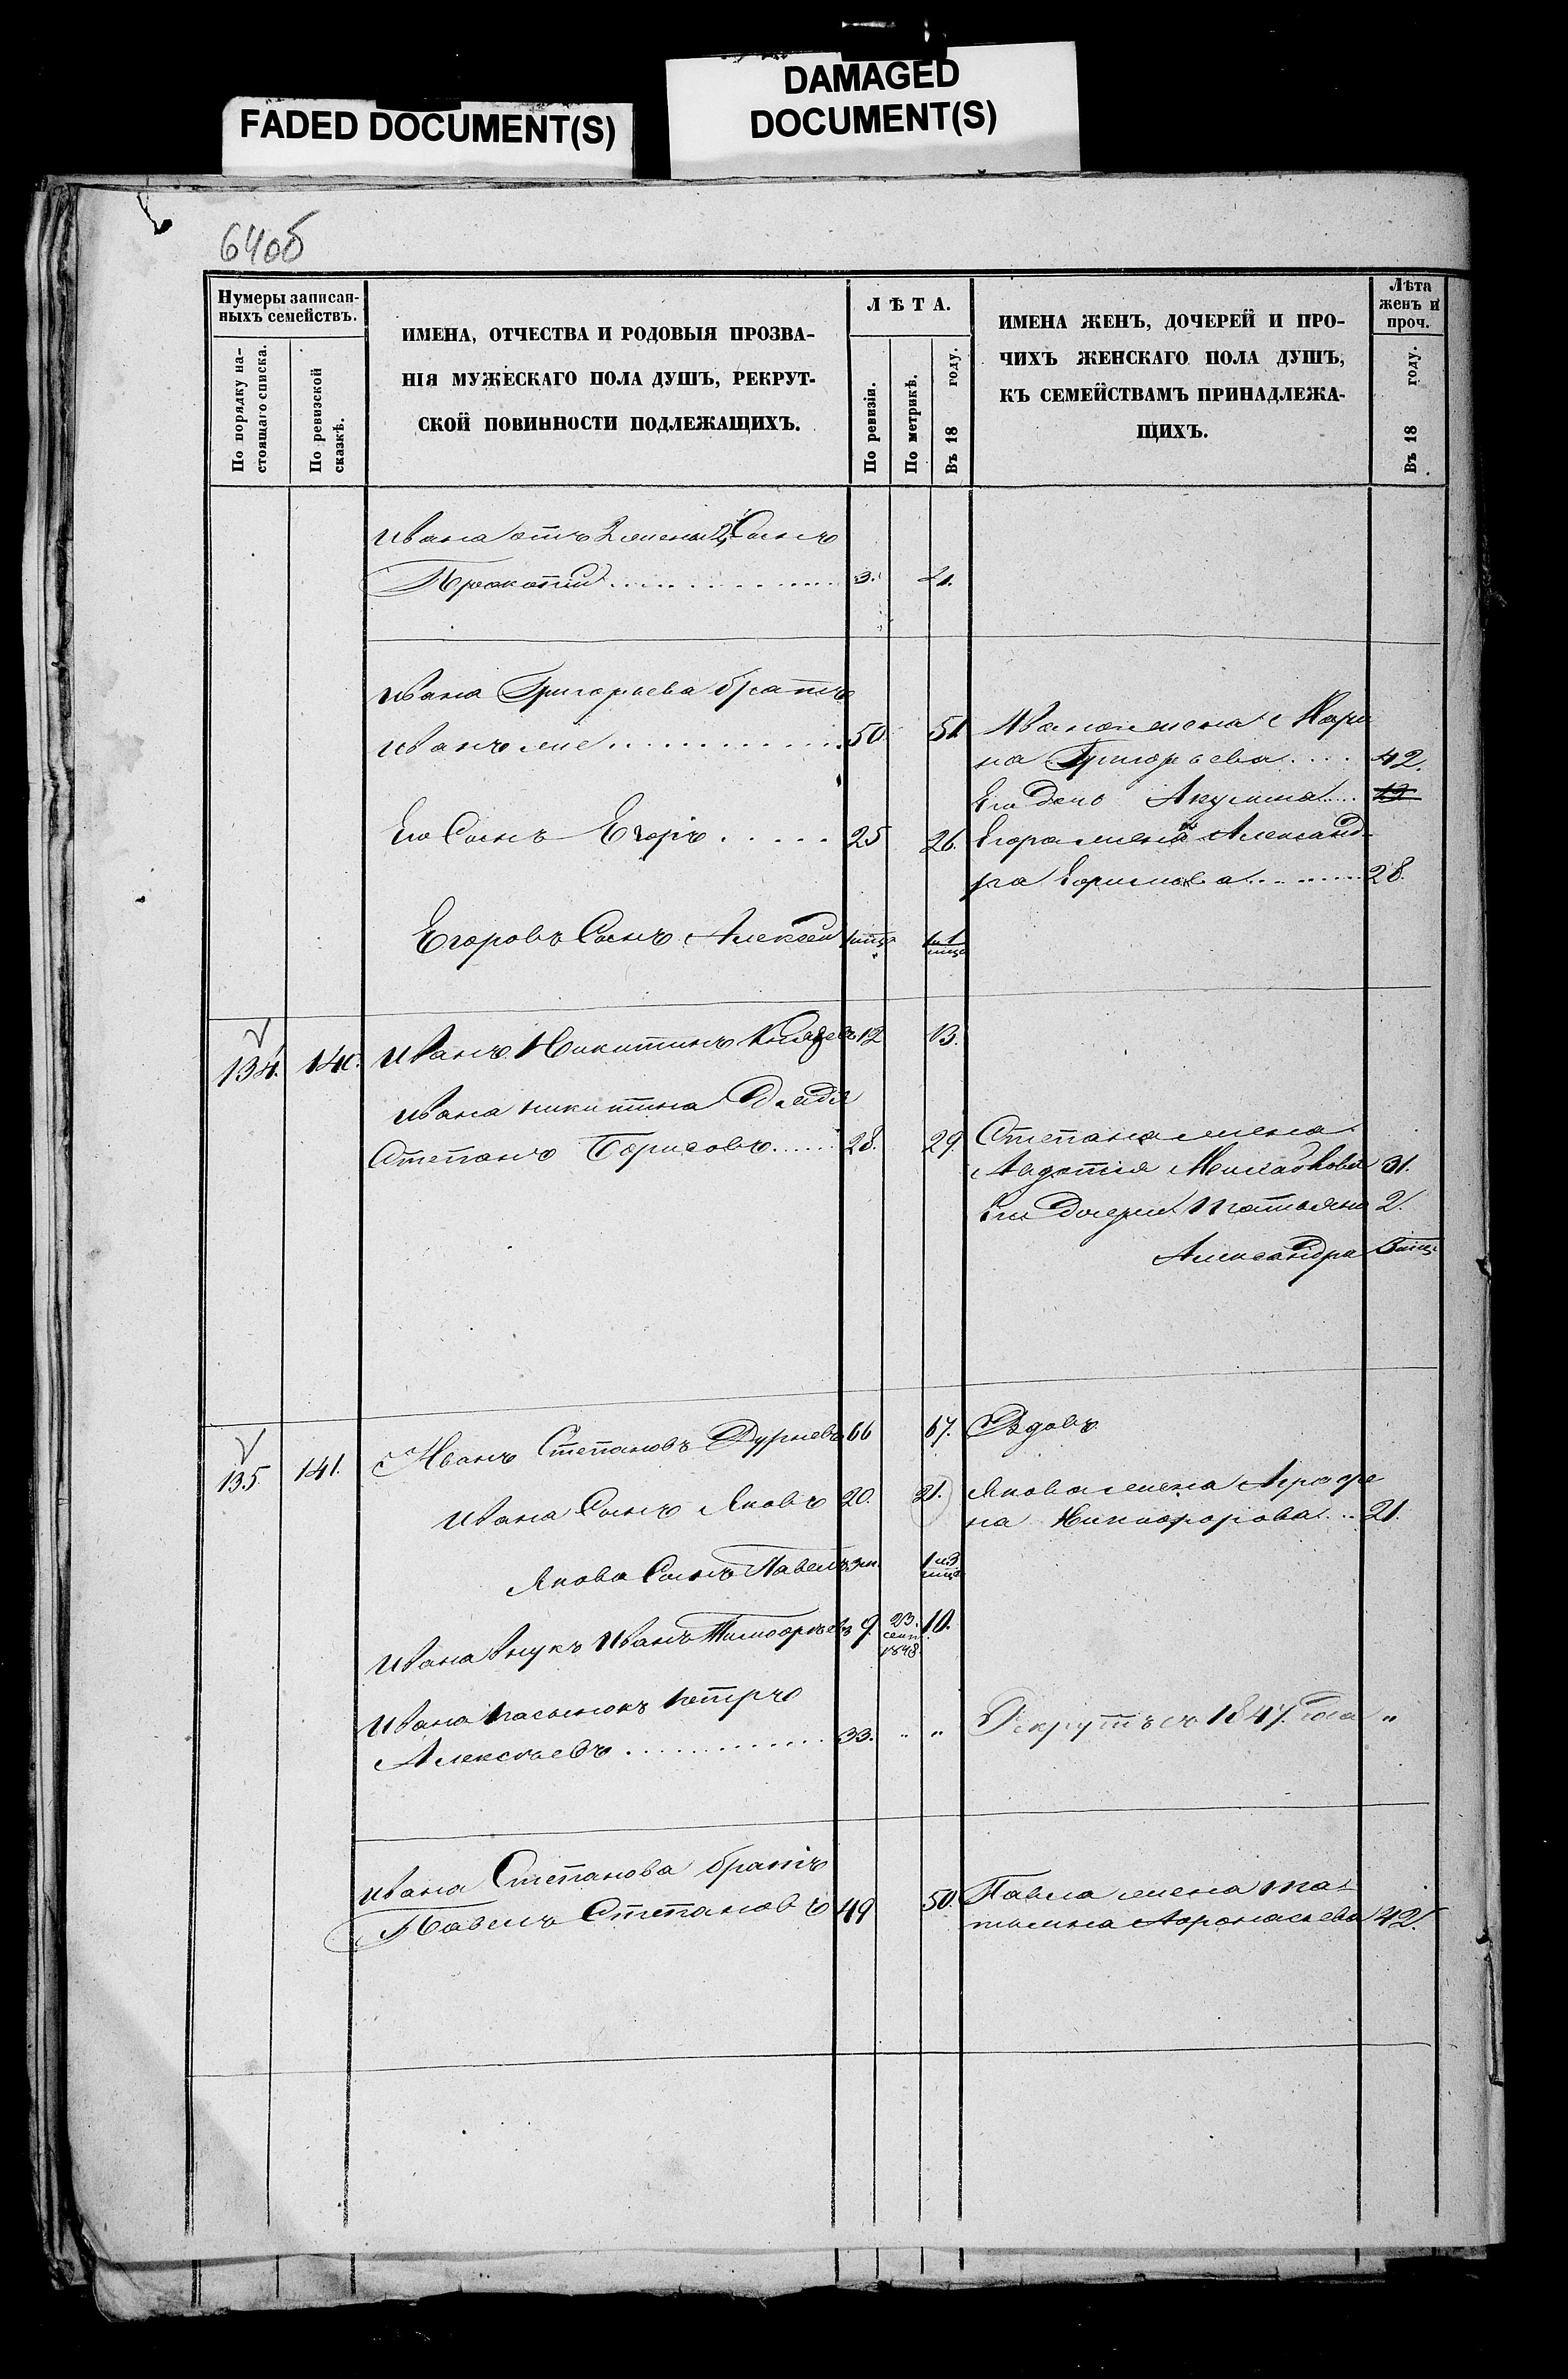 FADED DOCUMENT(S)
DAMAGED
DOCUMENT(S)
64об
Нумеры записан-
ныхъ семействъ.
По порядку на-
стоящаго списка.
По ревизской
сказкѣ.
ИМЕНА, ОТЧЕСТВА И РОДОВЫЯ ПРОЗВА-
НІЯ МУЖЕСКАГО ПОЛА ДУШЪ, РЕКРУТ-
СКОЙ ПОВИННОСТИ ПОДЛЕЖАЩИХЪ.
ЛѢТА.
По ревизіи.
По метрикѣ.
Въ 18 году.
ИМЕНА ЖЕНЪ, ДОЧЕРЕЙ И ПРО-
ЧИХЪ ЖЕНСКАГО ПОЛА ДУШЪ,
КЪ СЕМЕЙСТВАМЪ ПРИНАДЛЕЖА-
ЩИХЪ.
Лѣта
женъ и
проч.
Въ 18 году.
Ивана отъ 2 жены 2 Сынъ
Прокопий 3. 4.
Ивана Григорьева братъ
Иванъ же 50 51 Ивана жена Мари
на Григорьева 42.
Его дочь Акулина 13
Его Сынъ Егоръ 25 26. Егора жена Александ
ра 28.
Егоровъ Сынъ Алексей 1 мца 1 и 1 мца
134. 140. Иванъ Никитинъ Князевъ 12 13.
Ивана Никитина дядя
Степанъ Борисовъ 28. 29. Степана жена
Авдотия 31.
Его дочери Татьяна 2.
Александра
135 141. Иванъ Степановъ Дурневъ 66 67. Вдовъ
Ивана Сынъ Яковъ 20. 21. Якова жена Аграфе
на Никифорова 21.
Якова Сынъ Павелъ 3 м. 1 и 3 мца
Ивана внукъ Иванъ Тимофеевъ 9. 23. сент. 1848 10.
Ивана пасынокъ Петръ
Алексеевъ 33. " " Рекрутъ съ 1847. года "
Ивана Степанова братъ
Павелъ Степановъ 49 50. Павла жена Та-
тьяна Афонасьева 42.